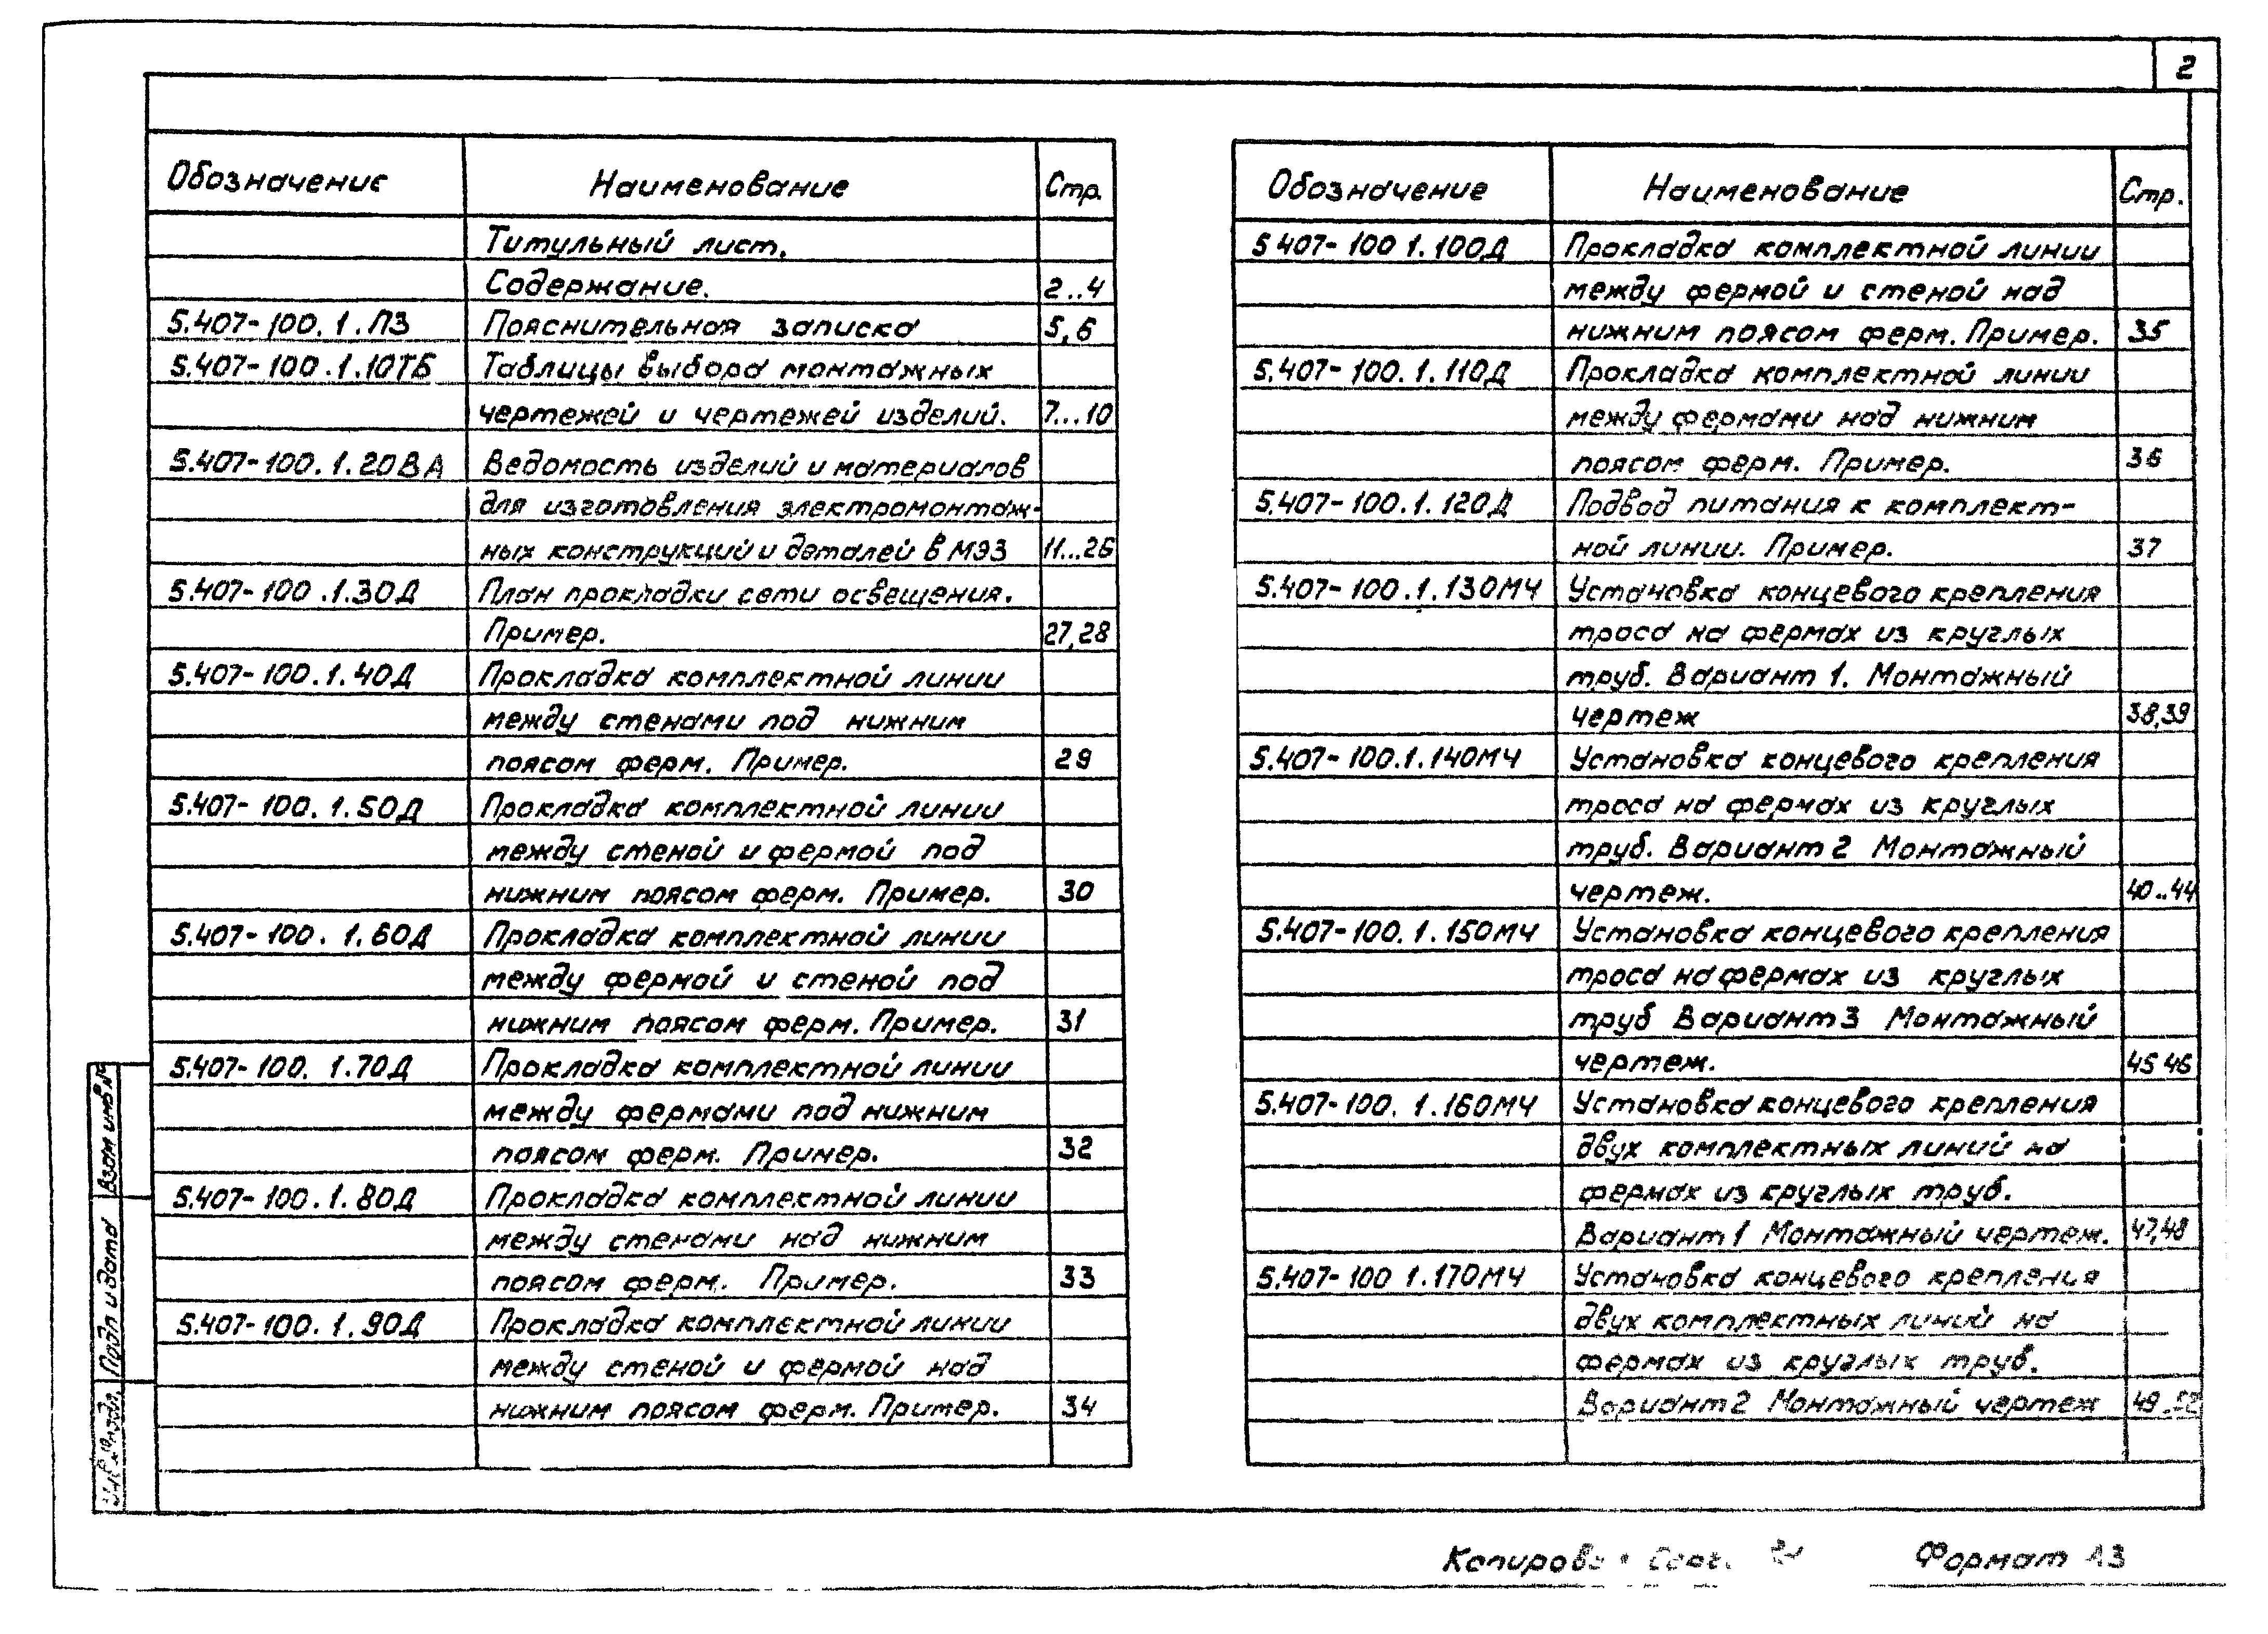 2
Обозначение Наименование Стр.
Титульный лист.
Содержание. 2..4
5.407-100.1.ПЗ Пояснительная записка 5,6
5.407-100.1.10ТБ Таблицы выбора монтажных
чертежей и чертежей изделий. 7...10
5.407-100.1.20ВА Ведомость изделий и материалов
для изготовления электромонтаж-
ных конструкций и деталей в МЭЗ 11...26
5.407-100.1.30Д План прокладки сети освещения.
Пример. 27,28
5.407-100.1.40Д Прокладка комплектной линии
между стенами под нижним
поясом ферм. Пример. 29
5.407-100.1.50Д Прокладка комплектной линии
между стеной и фермой под
нижним поясом ферм. Пример. 30
5.407-100.1.60Д Прокладка комплектной линии
между фермой и стеной под
нижним поясом ферм. Пример. 31
5.407-100.1.70Д Прокладка комплектной линии
между фермами под нижним
поясом ферм. Пример. 32
5.407-100.1.80Д Прокладка комплектной линии
между стенами над нижним
поясом ферм. Пример. 33
5.407-100.1.90Д Прокладка комплектной линии
между стеной и фермой над
нижним поясом ферм. Пример. 34
Обозначение Наименование Стр.
5.407-100 1.100Д Прокладка комплектной линии
между фермой и стеной над
нижним поясом ферм. Пример. 35
5.407-100.1.110Д Прокладка комплектной линии
между фермами над нижним
поясом ферм. Пример. 36
5.407-100.1.120Д Подвод питания к комплект-
ной линии. Пример. 37
5.407-100.1.130МЧ Установка концевого крепления
троса на фермах из круглых
труб. Вариант 1. Монтажный
чертеж 38,39
5.407-100.1.140МЧ Установка концевого крепления
троса на фермах из круглых
труб. Вариант 2 Монтажный
чертеж. 40..44
5.407-100.1.150МЧ Установка концевого крепления
троса на фермах из круглых
труб Вариант 3 Монтажный
чертеж. 45 46
5.407-100.1.160МЧ Установка концевого крепления
двух комплектных линий на
фермах из круглых труб.
Вариант 1 Монтажный чертеж. 47,48
5.407-100 1.170МЧ Установка концевого крепления
двух комплектных линий на
фермах из круглых труб.
Вариант 2 Монтажный чертеж 49..52
Взам инв №
Подп и дата
Инв № подл.
Формат А3